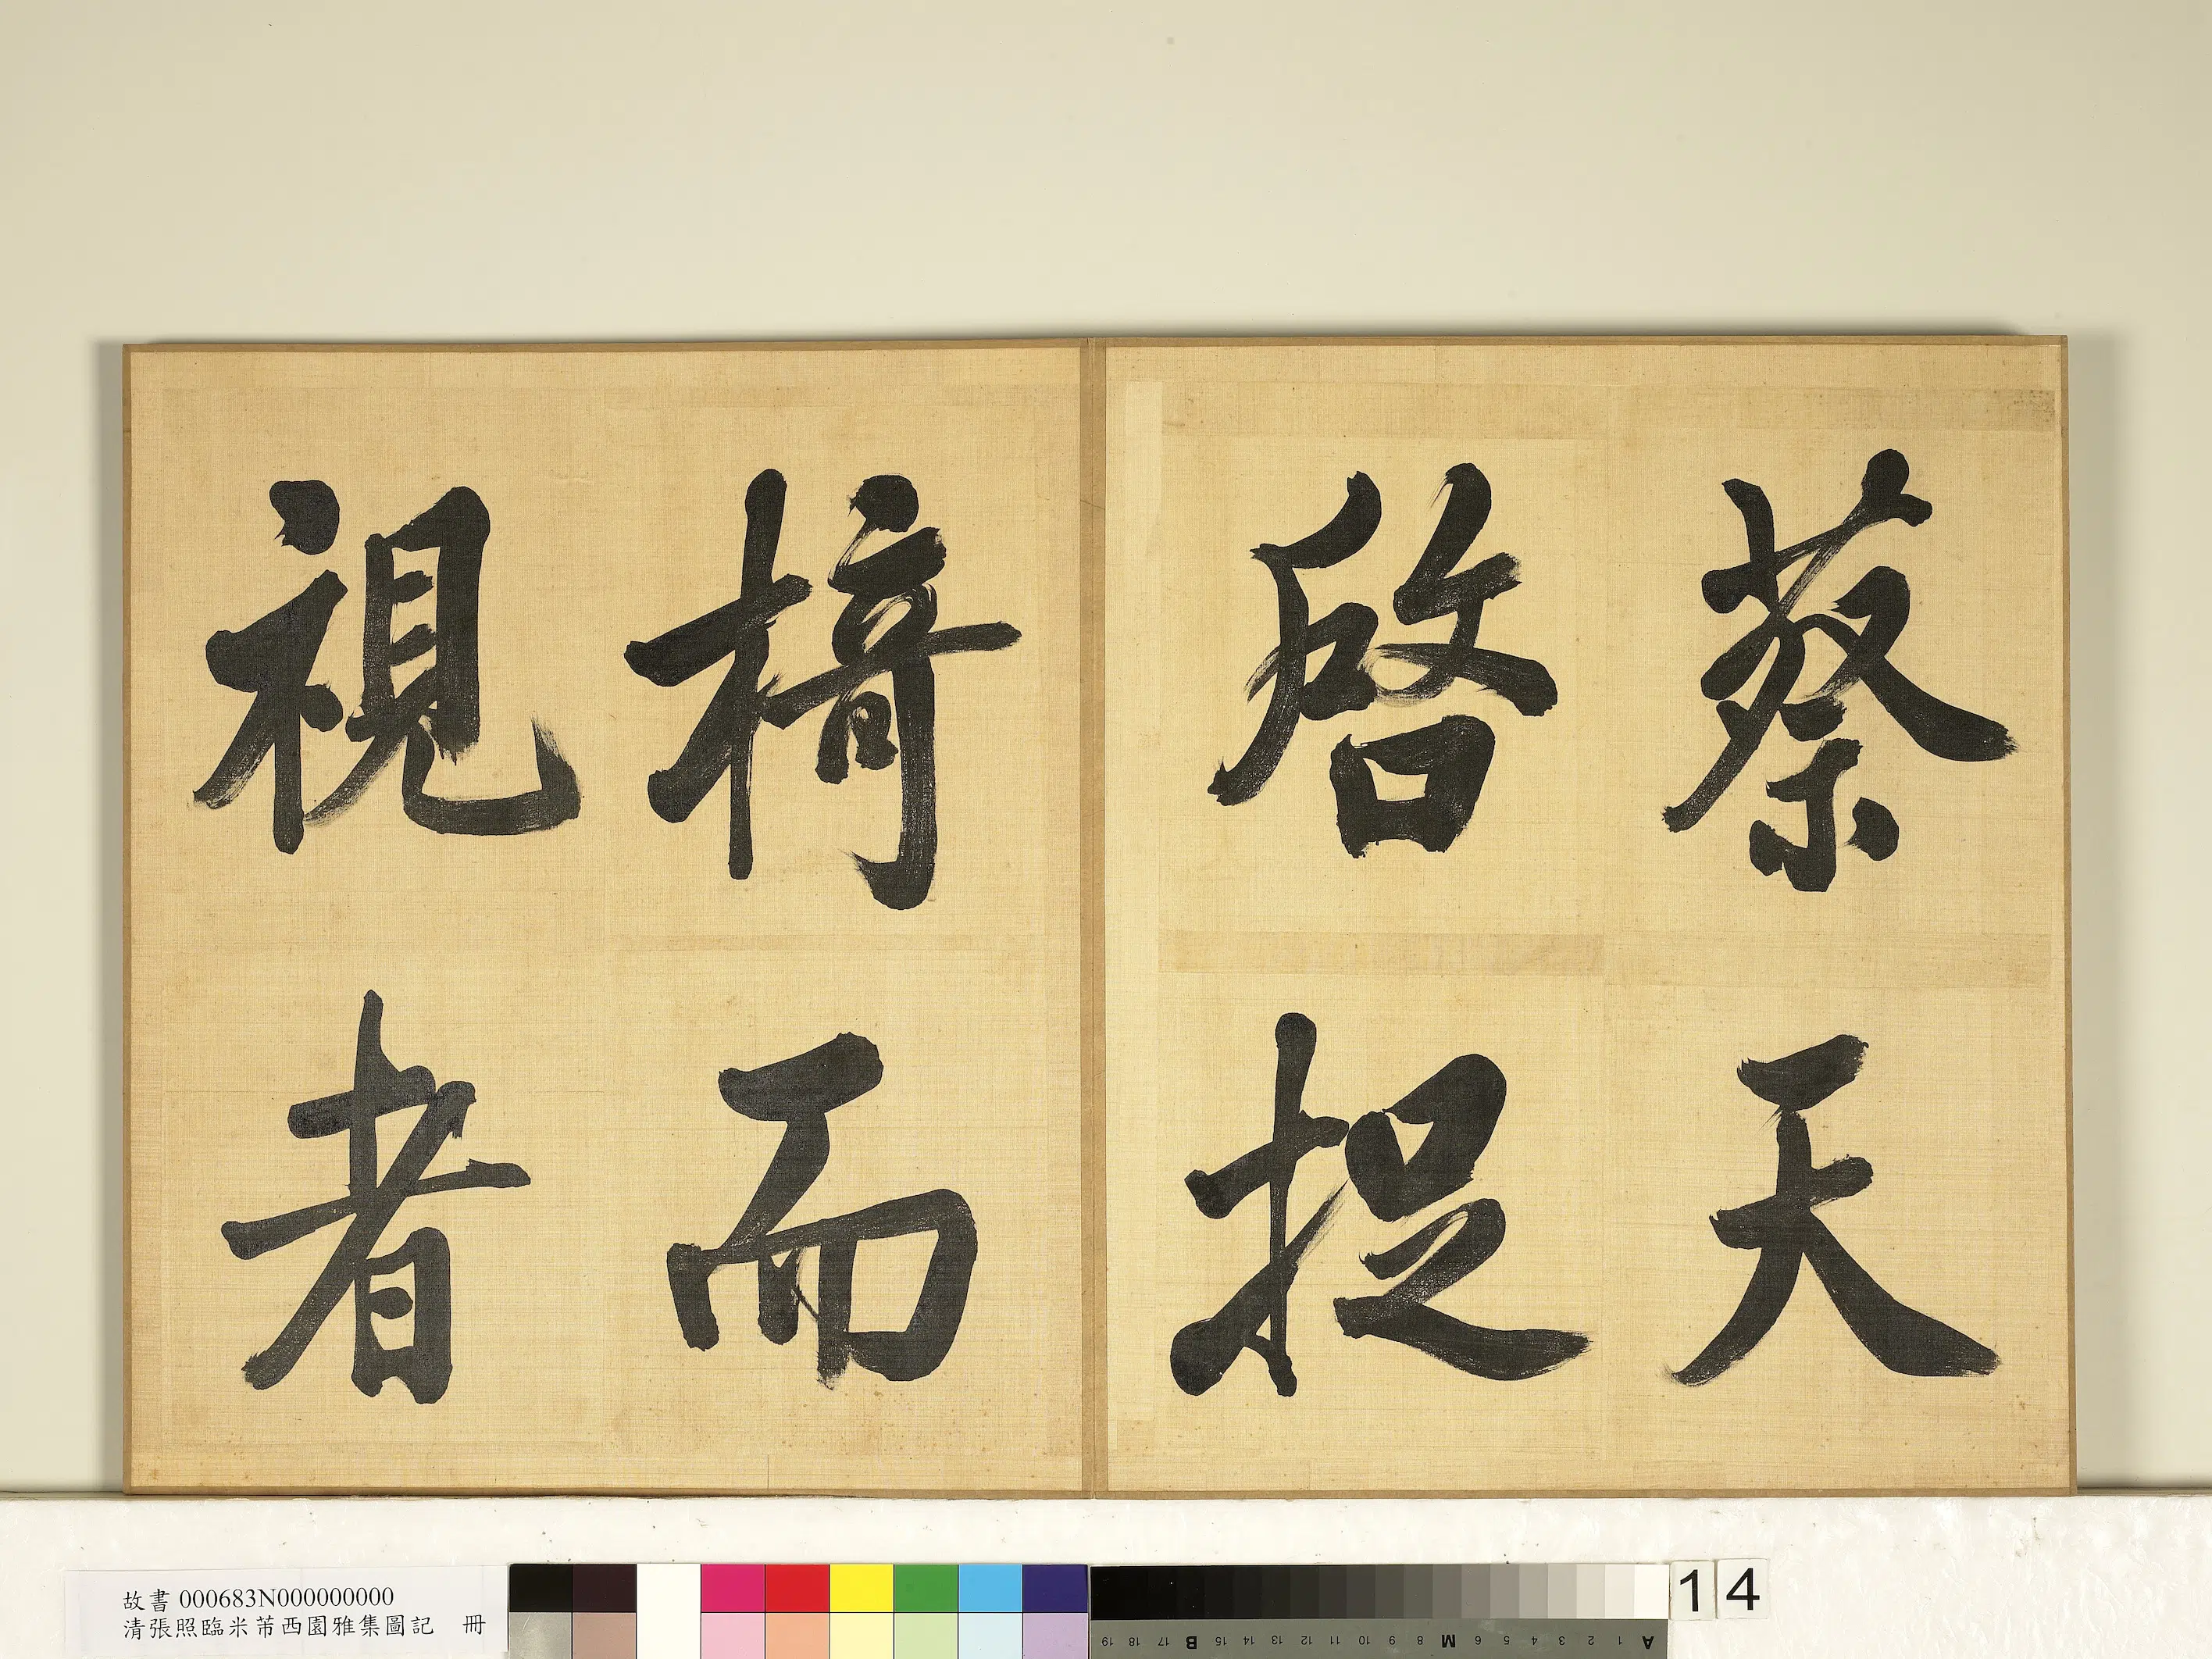 蔡天
啓捉
椅而
視者
故書 000683N000000000
清張照臨米芾西園雅集圖記 冊
19 18 17 B 15 14 13 12 11 10 9 8 M 6 5 4 3 2 1 A
14